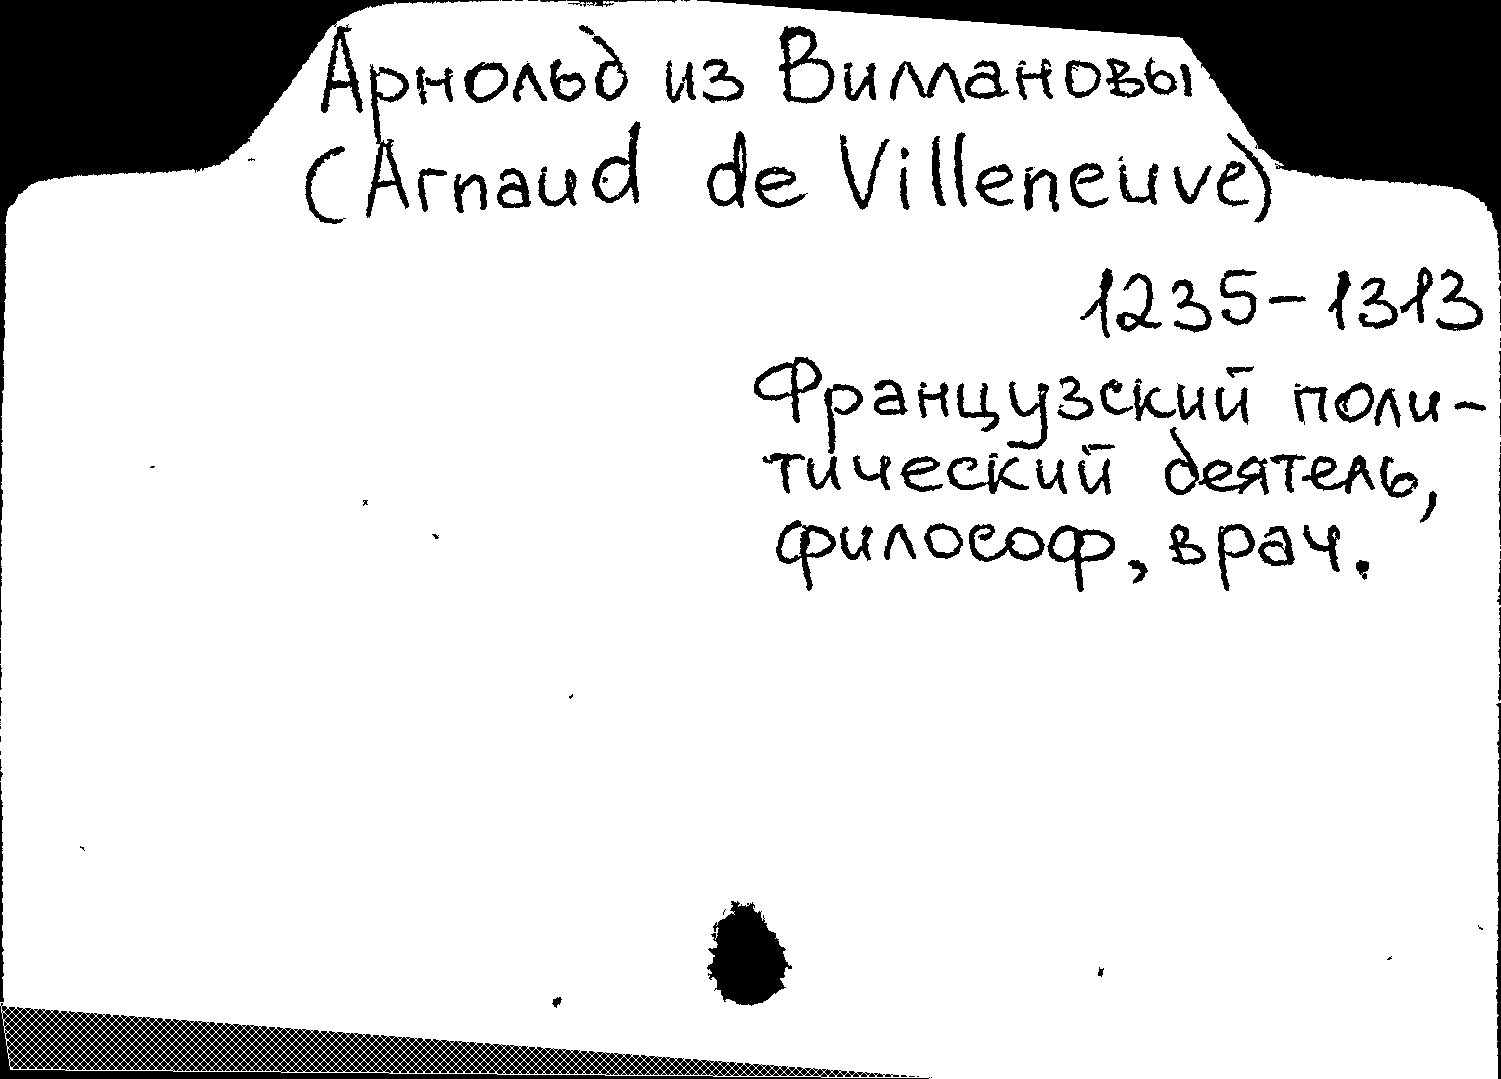 Арнольд из Виллановы
(Arnaud de Villeneuve)
1235-1313
Французский поли-
тический деятель,
философ, врач.